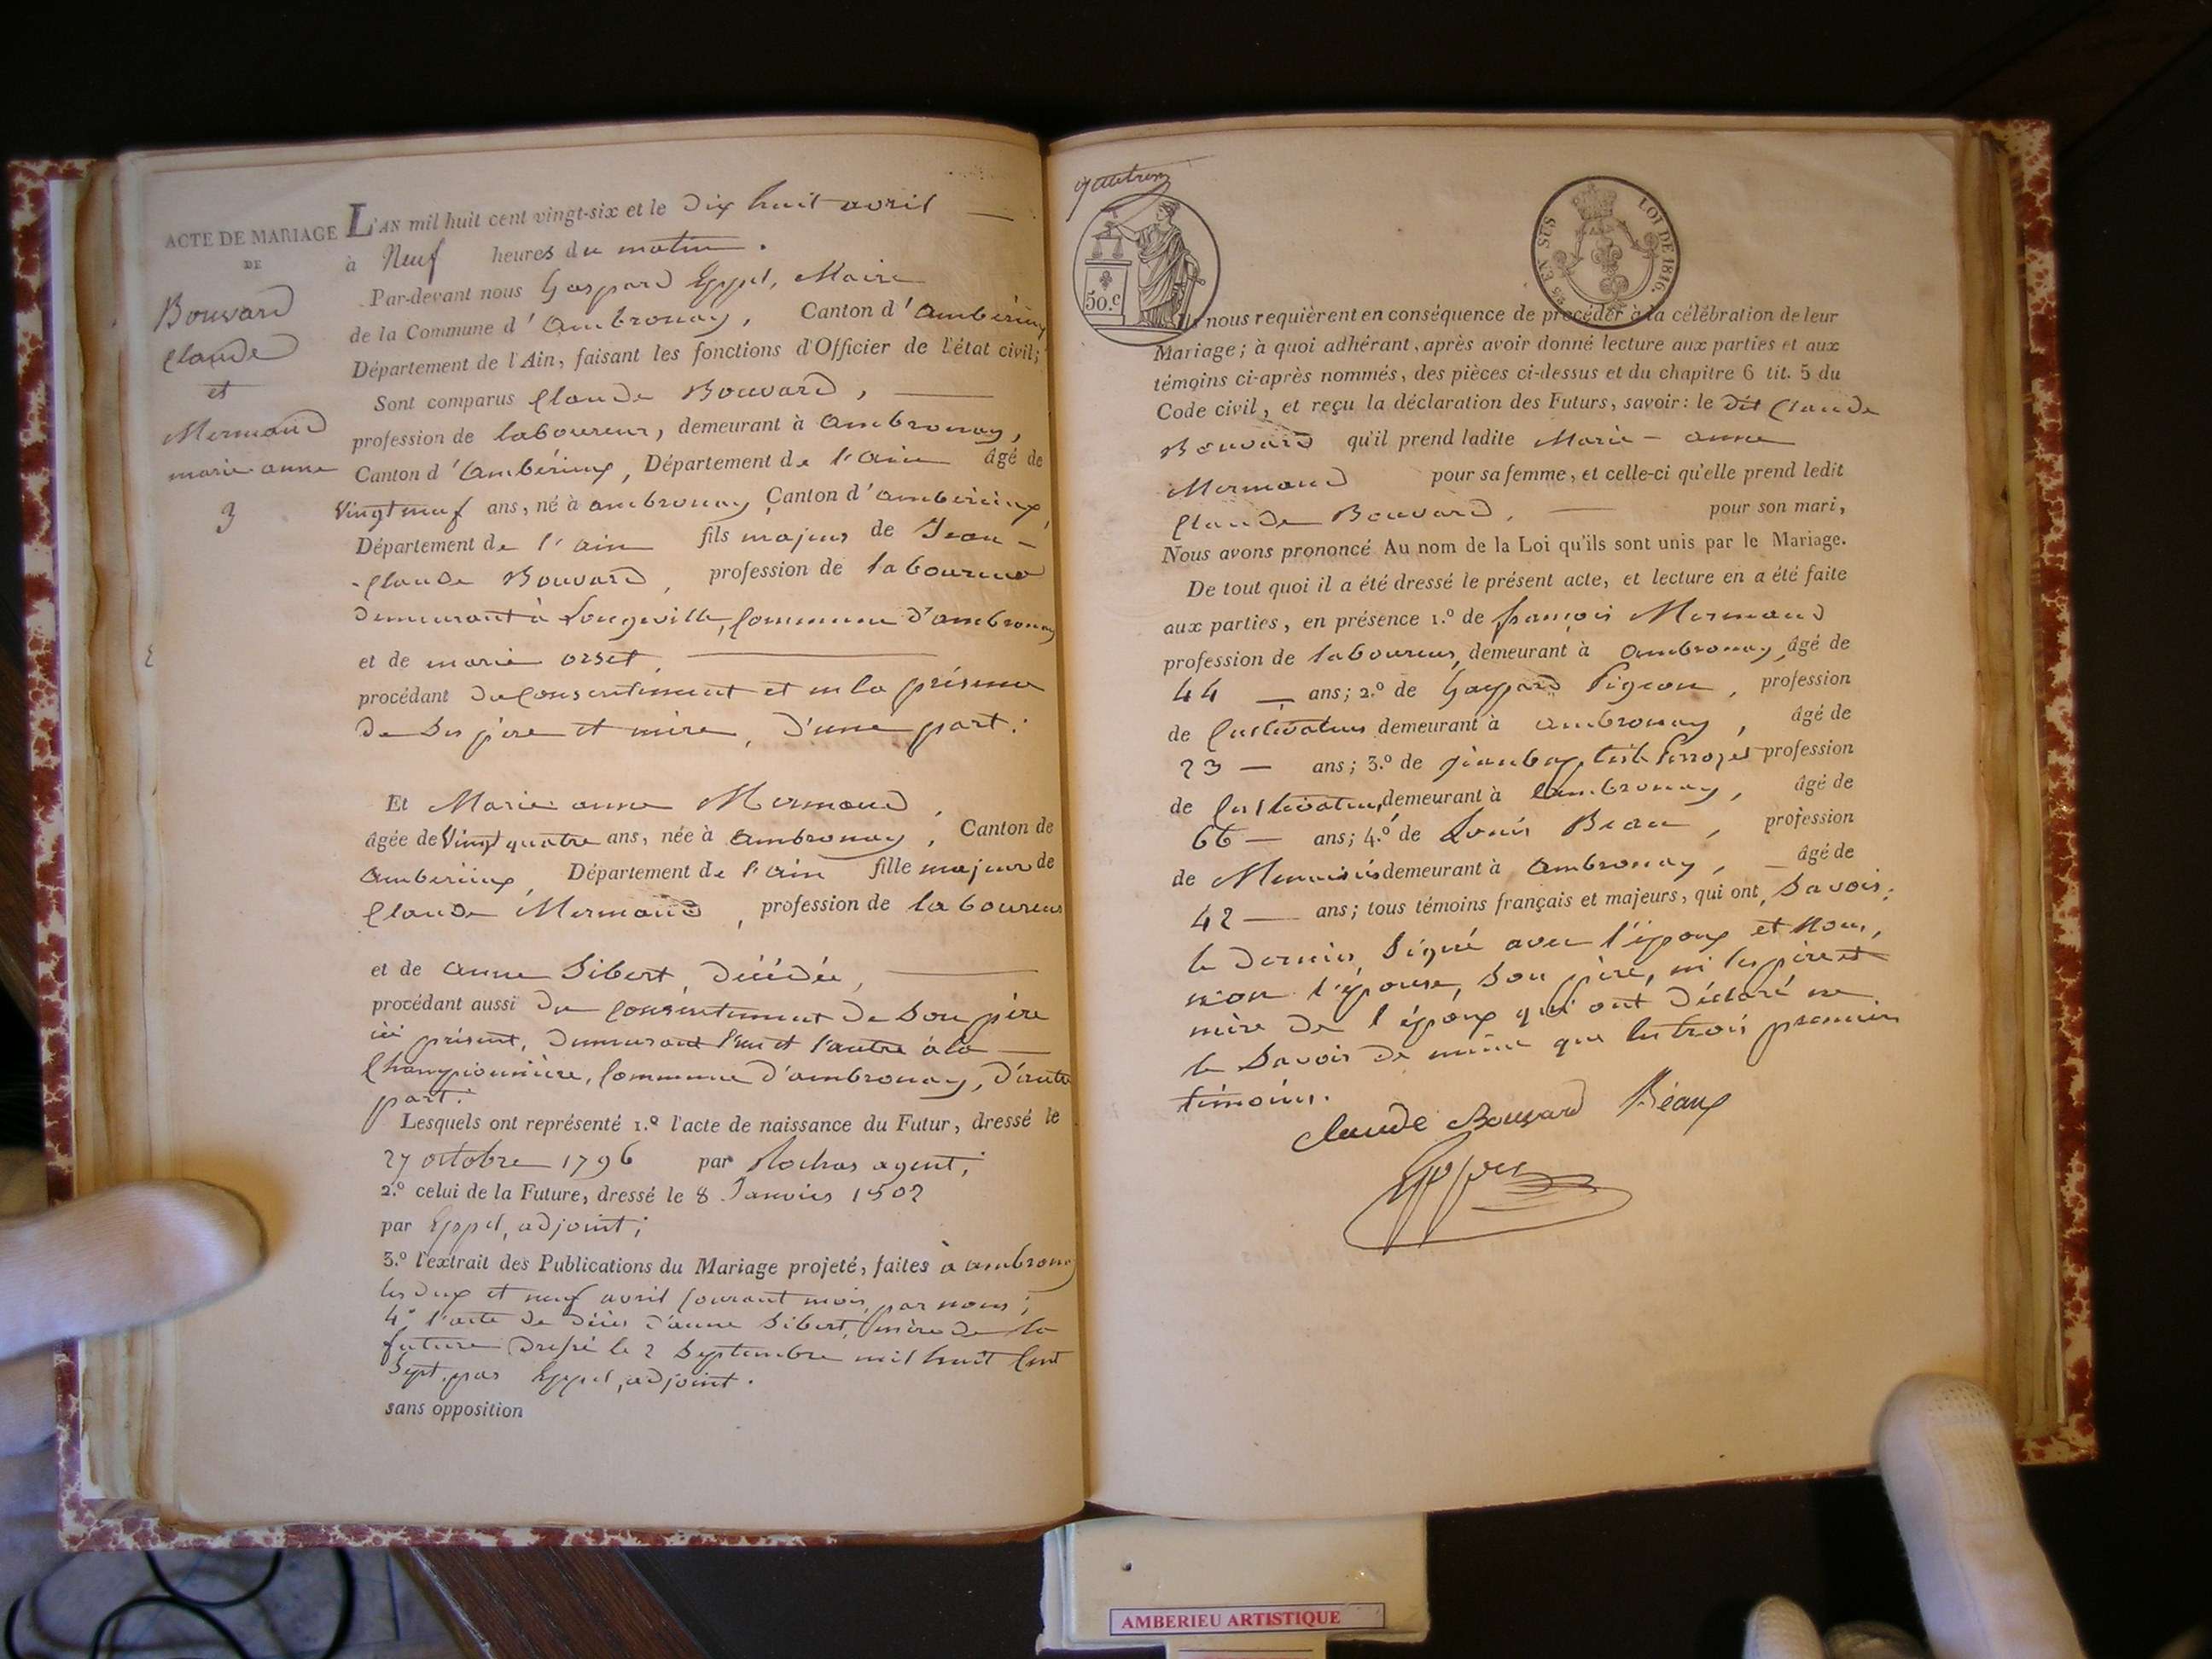 ACTE DE MARIAGE
DE
Bouvard
Claude
et
Mermand
marie anne
3
L'AN mil huit cent vingt-six et le Dix huit avril
à Neuf heures du matin.
Par-devant nous Gaspard Eppel, Maire
de la Commune d'Ambronay, Canton d'Ambérieux
Département de l'Ain, faisant les fonctions d'Officier de l'état civil;
Sont comparus Claude Bouvard,
profession de laboureur, demeurant à Ambronay,
Canton d'Ambérieux, Département de l'ain âgé de
Vingt neuf ans, né à ambronay Canton d'ambérieux,
Département de l'ain fils majeur de Jean-
-Claude Bouvard, profession de laboureur
demeurant à Longeville, Commune d'ambronay
et de marie orset,
procédant du Consentiment et en la présence
de Ses père et mère, D'une part.
Et Marie anne Mermand,
âgée de Vingt quatre ans, née à Ambronay, Canton de
Amberieux, Département de l'ain fille majeure de
Claude Mermand, profession de laboureur
et de anne Sibert, Décédée,
procédant aussi du Consentiment de Son père
ici présent, Demeurant l'un et l'autre à la
Championnière, Commune d'ambronay, D'autre
part.
Lesquels ont représenté 1.º l'acte de naissance du Futur, dressé le
27 octobre 1796 par Rochas agent;
2.º celui de la Future, dressé le 8 Janvier 1802
par Eppel, adjoint;
3.º l'extrait des Publications du Mariage projeté, faites à ambronay
les deux et neuf avril Courant mois, par nous;
4º l'acte de décès d'anne Sibert, mère de la
future Dressé le 2 Septembre mil huit Cent
Sept, par Eppel, adjoint.
sans opposition
50.c
25 EN SUS
LOI DE 1816.
Ils nous requièrent en conséquence de procéder à la célébration de leur
Mariage; à quoi adhérant, après avoir donné lecture aux parties et aux
témoins ci-après nommés, des pièces ci-dessus et du chapitre 6 tit. 5 du
Code civil, et reçu la déclaration des Futurs, savoir: le dit Claude
Bouvard qu'il prend ladite Marie-anne
Mermand pour sa femme, et celle-ci qu'elle prend ledit
Claude Bouvard, pour son mari,
Nous avons prononcé Au nom de la Loi qu'ils sont unis par le Mariage.
De tout quoi il a été dressé le présent acte, et lecture en a été faite
aux parties, en présence 1.º de françois Mermand
profession de laboureur, demeurant à Ambronay, âgé de
44 ans; 2.º de Gaspard Pigeon, profession
de Cultivateur demeurant à Ambronay, âgé de
23 ans; 3.º de jeanbaptiste profession
de Cultivateur, demeurant à Ambronay, âgé de
66 ans; 4.º de Louis Beau, profession
de Menuisier demeurant à Ambronay, âgé de
42 ans; tous témoins français et majeurs, qui ont, Savoir,
le Dernier Signé avec l'époux et Nous,
non l'épouse, Son père, ni les père et
mère de l'époux qui ont Déclaré ne
le Savoir de même que les trois premiers
témoins.
Claude Bouvard Béaux
Eppel
AMBERIEU ARTISTIQUE